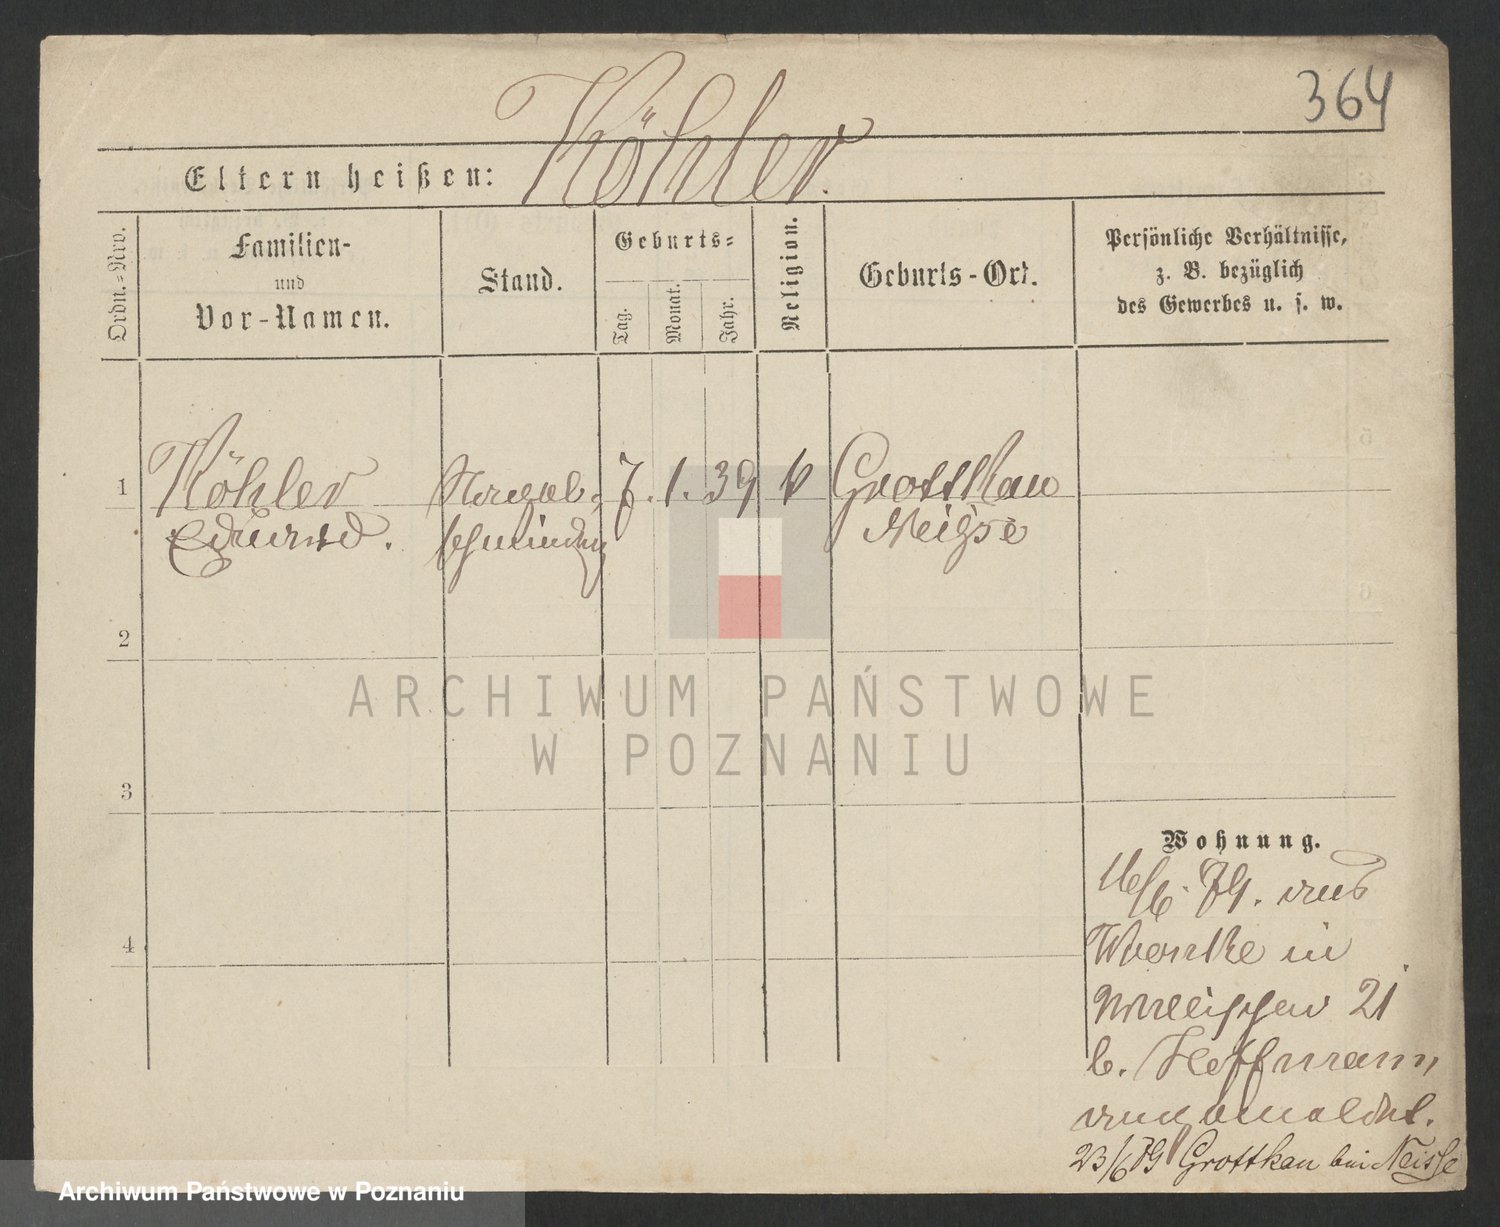 364
Köhler.
Eltern heißen:
Ordn.-Nro.
Familien-
und
Vor-Namen.
Stand.
Geburts-
Tag.
Monat.
Jahr.
Religion.
Geburts-Ort.
Persönliche Verhältnisse,
z. B. bezüglich
des Gewerbes u. s. w.
1
Köhler
Edmund.
7. 1. 39
Grottkau
Neisse
2
3
4
Wohnung.
16/6. 79. aus
in
21
b. Hoffmann
angemeldet.
23/6 79 Grottkau bei Neisse
ARCHIWUM PAŃSTWOWE
W POZNANIU
Archiwum Państwowe w Poznaniu